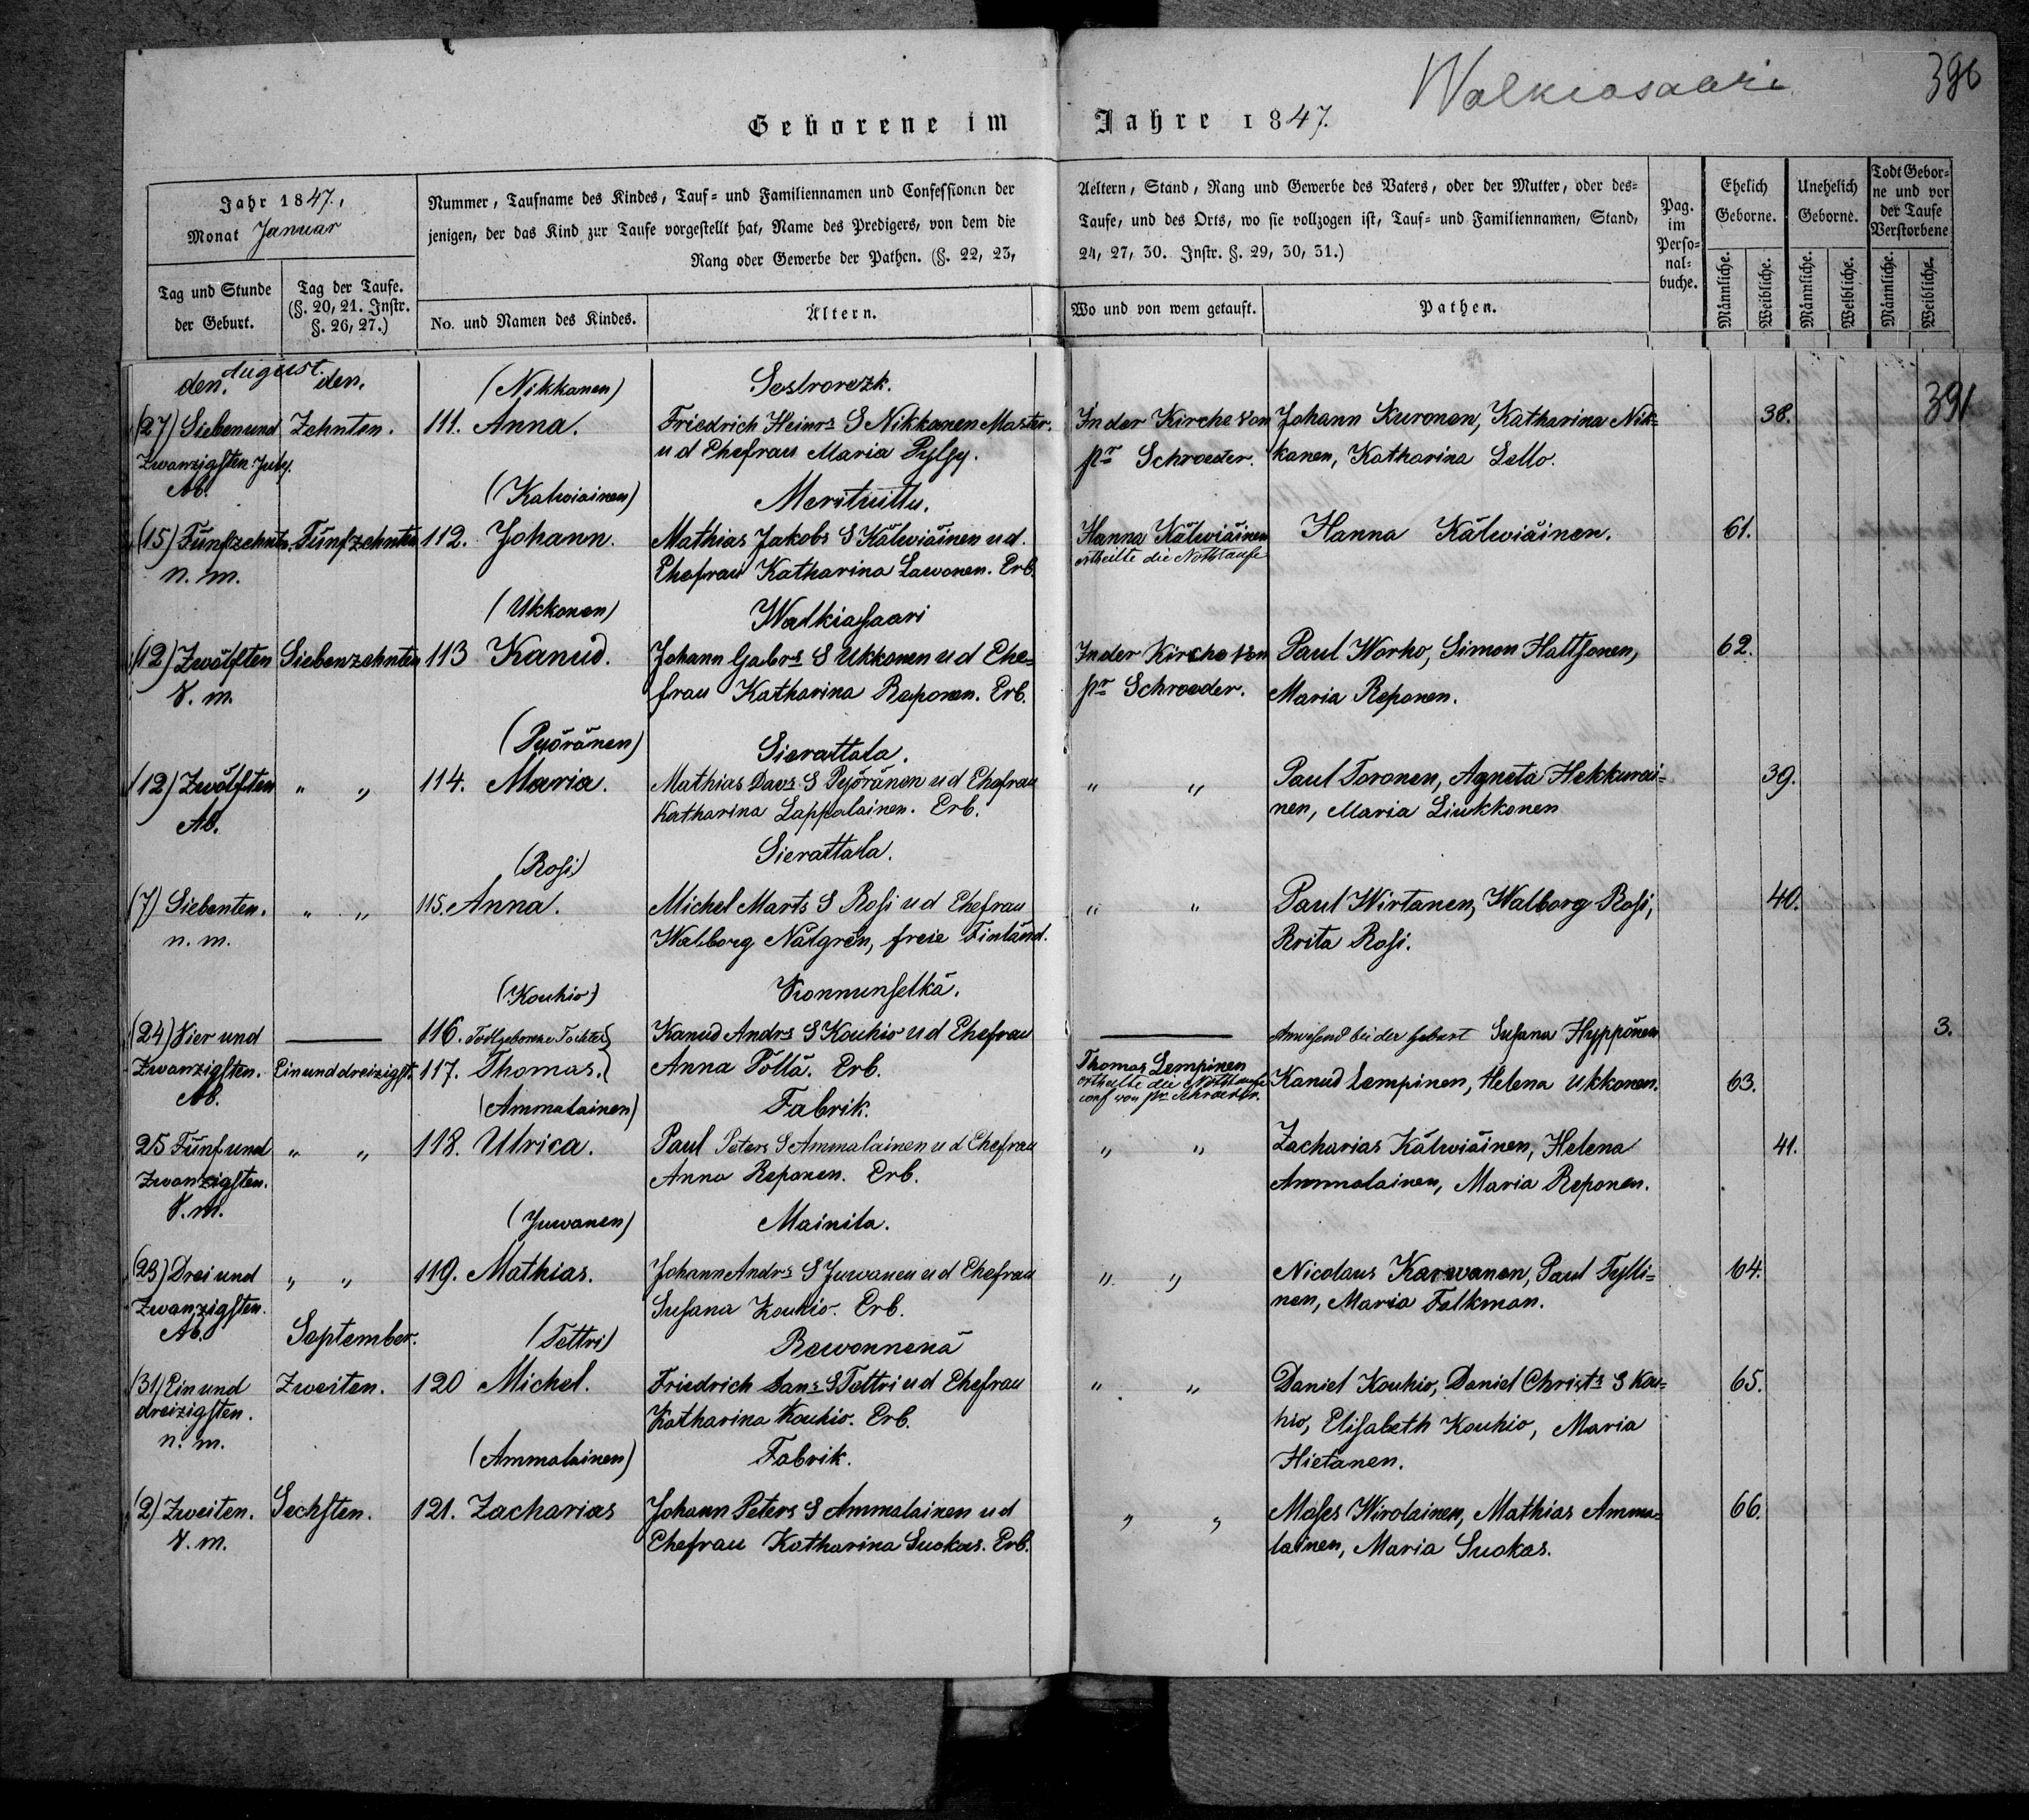 Walkiasaari
396
Geborene im Jahre 1847.
Jahr 1847.,
Monat Januar
Nummer, Taufname des Kindes, Tauf= und Familiennamen und Confessionen der
jenigen, der das Kind zur Taufe vorgestellt hat, Name des Predigers, von dem die
Rang oder Gewerbe der Pathen. (§. 22, 23,
Aeltern, Stand, Rang und Gewerbe des Vaters, oder der Mutter, oder des=
Taufe, und des Orts, wo sie vollzogen ist, Tauf= und Familiennamen, Stand,
24, 27, 30. Instr. §. 29, 30, 31.)
Pag.
im
Perso=
nal=
buche.
Ehelich
Geborne.
Unehelich
Geborne.
Todt Gebor=
ne und vor
der Taufe
Verstorbene
Männliche.
Weibliche.
Männliche.
Weibliche.
Männliche.
Weibliche.
Tag und Stunde
der Geburt.
Tag der Taufe.
(§. 20, 21. Instr.
§. 26, 27.)
No. und Namen des Kindes.
Ältern.
Wo und von wem getauft.
Pathen.
August.
den. den. (Nikkanen) Sestrorezk.
391
(27) Sieben und Zehnten. 111. Anna. Friedrich Heinrs S Nikkanen Master. In der Kirche von Johann Kuronen, Katharina Nik= 38.
Zwanzigsten July. u d Ehefrau Maria Pylsy. pr Schroeder. kanen, Katharina Lello.
Ab. (Kalwiainen) Merituittu.
(15) Fünfzehnten. Fünfzehnten 112. Johann. Mathias Jakobs S Kälwiäinen u d. Hanna Kälwiäinen Hanna Kälwiäinen. 61.
n. m. Ehefrau Katharina Lawonen. Erb. ertheilte die Nothtaufe
(Ukkonen) Walkiasaari
(12) Zwölften Siebenzehnten 113 Kanud. Johann Gabrs S Ukkonen u d Ehe= In der Kirche von Paul Worho, Simon Hattsonen, 62.
V. m. frau Katharina Reponen. Erb. pr Schroeder. Maria Reponen.
(Pyöränen) Sierattala.
(12) Zwölften " " 114. Maria. Mathias Davs S Pyöränen u d Ehefrau " " Paul Toronen, Agneta Hekkurai= 39.
Ab. Katharina Lappalainen. Erb. nen, Maria Liukkonen
(Rosi) Sierattala.
(7) Siebenten. " " 115. Anna. Michel Marts S Rosi u d Ehefrau " " Paul Wirtanen, Walborg Rosi, 40.
n. m. Walborg Nätgrén, freie Finländ. Brita Rosi.
(Koukio)
(24) Vier und 116. Todtgeborene Tochter Kanud Andrs S Koukio u d Ehefrau Anwesend bei der Geburt Susana Hyppönen 3.
Zwanzigsten. Ein und dreizigst. 117. Thomas. Anna Pöllä. Erb. Thomas Lempinen Kanud Lempinen, Helena Ukkonen. 63.
ertheilte die Nothtaufe
conf von pr Schroeder.
Ab. (Ammalainen) Fabrik.
25 Fünf und " " 118. Ulrica. Paul Peters S Ammalainen u d Ehefrau " " Zacharias Kälwiäinen, Helena 41.
Zwanzigsten. Anna Reponen. Erb. Ammalainen, Maria Reponen.
V. m. (Juwanen) Mainila.
(23) Drei und " " 119. Mathias. Johann Andrs S Juwanen u d Ehefrau " " Nicolaus Karwanen, Paul Tylli= 64.
Zwanzigsten. Susana Koukio. Erb. nen, Maria Falkman.
Ab. September. (Tettri) Rewonnenä
(31) Ein und Zweiten. 120 Michel. Friedrich Sams S Tettri u d Ehefrau " " Daniel Koukio, Daniel Christs S Kou= 65.
dreizigsten. Katharina Koukio. Erb. hio, Elisabeth Koukio, Maria
n. m. (Ammalainen) Fabrik. Hietanen.
(2) Zweiten. Sechsten. 121. Zacharias Johann Peters S Ammalainen u d " " Moses Wirolainen, Mathias Amma= 66.
V. m. Ehefrau Katharina Suokas. Erb. lainen, Maria Suokas.